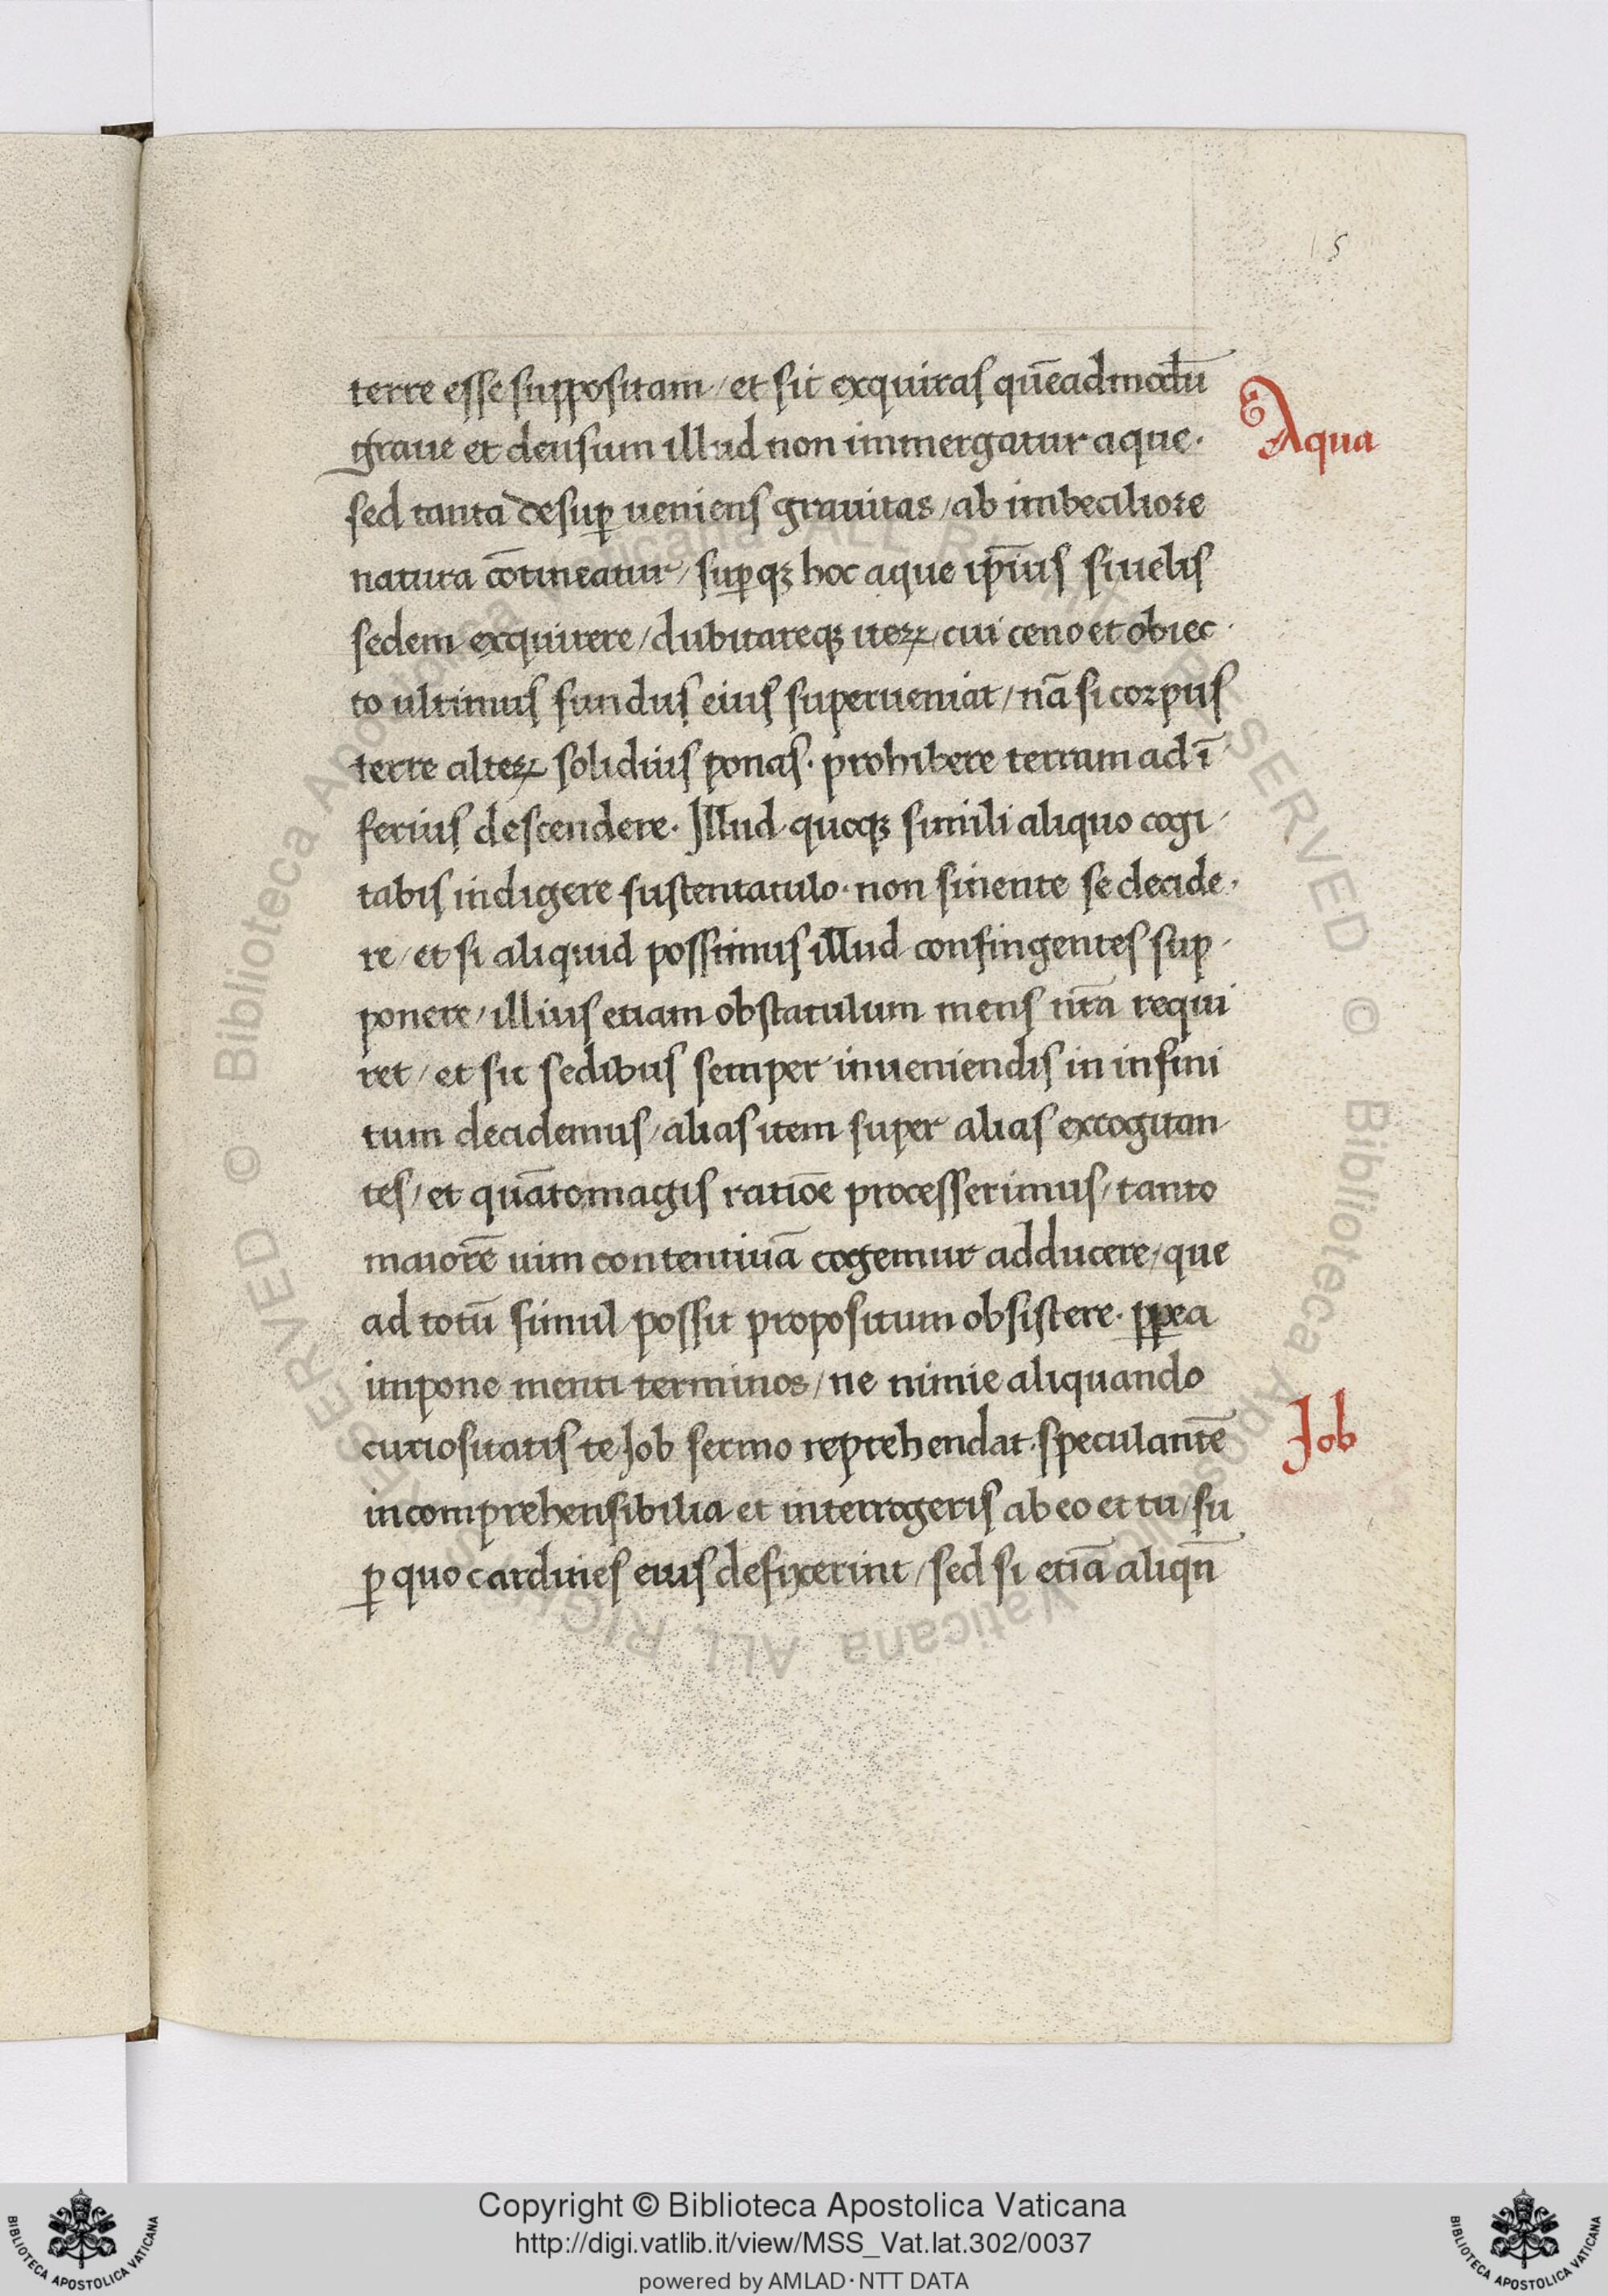 15
terre esse suppositam / et sic exquiras quēadmodū
graue et densum illud non immergatur aque ·
Aqua
sed tanta desuꝑ ueniens grauitas / ab imbeciliore
natura cōtineatur / suꝑqꝫ hoc aque ip̄ius si uelis
sedem exquirere / dubitareqꝫ iteꝝ / cui ceno et obiec
to ultimus fundus eius superueniat / nā si corpus
terre alteꝝ solidius ponas · prohibere terram ad ī
ferius descendere · Illud quoqꝫ simili aliquo cogi
tabis indigere sustentaculo · non sinente se decide
re / et si aliquid possimus illud confingentes sup
ponere / illius etiam obstaculum mens nr̄a requi
ret / et sic sedibus semper inueniendis in infini
tum decidemus / alias item super alias excogitan
tes / et quātomagis ratiōe processerimus / tanto
maiorē uim contentiuā cogemur adducere / que
ad totū simul possit propositum obsistere · ꝓpea
impone menti terminos / ne nimie aliquando
curiositatis te Job sermo reprehendat · speculantē
Job
incomprehensibilia et interrogeris ab eo et tu / su
ꝑ quo cardines eius defixerint / sed si etiā aliqn̄
© Biblioteca Apostolica Vaticana ALL RIGHTS RESERVED © Biblioteca Apostolica Vaticana ALL RIGHTS RESERVED
BIBLIOTECA APOSTOLICA VATICANA
Copyright © Biblioteca Apostolica Vaticana
http://digi.vatlib.it/view/MSS_Vat.lat.302/0037
powered by AMLAD · NTT DATA
BIBLIOTECA APOSTOLICA VATICANA